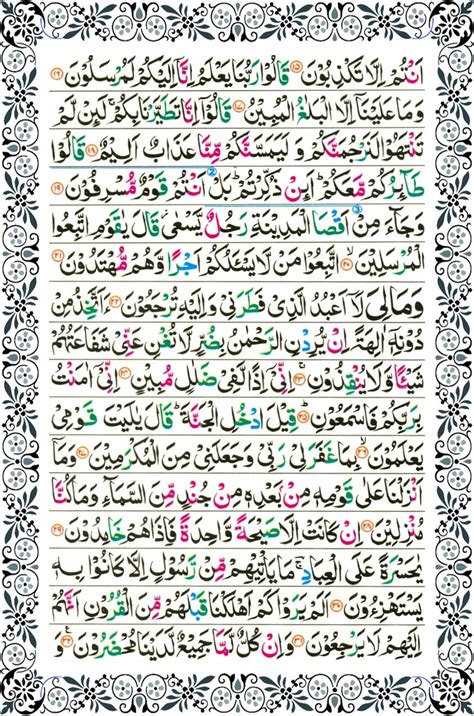 اَنْتُمْ اِلَّا تَكْذِبُوْنَ ۝۱۵ قَالُوْا رَبُّنَا يَعْلَمُ اِنَّاۤ اِلَيْكُمْ لَمُرْسَلُوْنَ ۝۱۶
وَمَا عَلَيْنَاۤ اِلَّا الْبَلٰغُ الْمُبِيْنُ ۝۱۷ قَالُوْۤا اِنَّا تَطَيَّرْنَا بِكُمْ ۚ لَئِنْ لَّمْ
تَنْتَهُوْا لَنَرْجُمَنَّكُمْ وَلَيَمَسَّنَّكُمْ مِّنَّا عَذَابٌ اَلِيْمٌ ۝۱۸ قَالُوْا
طَآئِرُكُمْ مَّعَكُمْ ؕ اَئِنْ ذُكِّرْتُمْ ؕ بَلْ اَنْتُمْ قَوْمٌ مُّسْرِفُوْنَ ۝۱۹
وَجَآءَ مِنْ اَقْصَا الْمَدِيْنَةِ رَجُلٌ يَّسْعٰى ؗ قَالَ يٰقَوْمِ اتَّبِعُوا
الْمُرْسَلِيْنَ ۝۲۰ اتَّبِعُوْا مَنْ لَّا يَسْئَلُكُمْ اَجْرًا وَّهُمْ مُّهْتَدُوْنَ ۝۲۱
وَمَا لِيَ لَاۤ اَعْبُدُ الَّذِيْ فَطَرَنِيْ وَاِلَيْهِ تُرْجَعُوْنَ ۝۲۲ ءَاَتَّخِذُ مِنْ
دُوْنِهٖۤ اٰلِهَةً اِنْ يُّرِدْنِ الرَّحْمٰنُ بِضُرٍّ لَّا تُغْنِ عَنِّيْ شَفَاعَتُهُمْ
شَيْئًا وَّلَا يُنْقِذُوْنِ ۝۲۳ اِنِّيْۤ اِذًا لَّفِيْ ضَلٰلٍ مُّبِيْنٍ ۝۲۴ اِنِّيْۤ اٰمَنْتُ
بِرَبِّكُمْ فَاسْمَعُوْنِ ۝۲۵ قِيْلَ ادْخُلِ الْجَنَّةَ ؕ قَالَ يٰلَيْتَ قَوْمِيْ
يَعْلَمُوْنَ ۝۲۶ بِمَا غَفَرَ لِيْ رَبِّيْ وَجَعَلَنِيْ مِنَ الْمُكْرَمِيْنَ ۝۲۷ وَمَاۤ
اَنْزَلْنَا عَلٰى قَوْمِهٖ مِنْۢ بَعْدِهٖ مِنْ جُنْدٍ مِّنَ السَّمَآءِ وَمَا كُنَّا
مُنْزِلِيْنَ ۝۲۸ اِنْ كَانَتْ اِلَّا صَيْحَةً وَّاحِدَةً فَاِذَاهُمْ خٰمِدُوْنَ ۝۲۹
يٰحَسْرَةً عَلَى الْعِبَادِ ۚ مَا يَاْتِيْهِمْ مِّنْ رَّسُوْلٍ اِلَّا كَانُوْا بِهٖ
يَسْتَهْزِءُوْنَ ۝۳۰ اَلَمْ يَرَوْا كَمْ اَهْلَكْنَا قَبْلَهُمْ مِّنَ الْقُرُوْنِ اَنَّهُمْ
اِلَيْهِمْ لَا يَرْجِعُوْنَ ۝۳۱ وَاِنْ كُلٌّ لَّمَّا جَمِيْعٌ لَّدَيْنَا مُحْضَرُوْنَ ۝۳۲ وَ